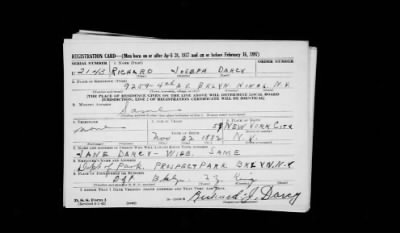 REGISTRATION CARD—(Men born on or after April 28, 1877 and on or before February 16, 1897)
SERIAL NUMBER 1. NAME (Print) ORDER NUMBER
U 2143 RICHARD JOSEPH DARCY
2. PLACE OF RESIDENCE (Print)
9259-4th AVE BKLYN KINGS N.Y.
[THE PLACE OF RESIDENCE GIVEN ON THE LINE ABOVE WILL DETERMINE LOCAL BOARD
JURISDICTION; LINE 2 OF REGISTRATION CERTIFICATE WILL BE IDENTICAL]
3. MAILING ADDRESS
Same
4. TELEPHONE 5. AGE IN YEARS 6. PLACE OF BIRTH
none 59 NEW YORK CITY
DATE OF BIRTH
Nov 22 1882 N.Y.
7. NAME AND ADDRESS OF PERSON WHO WILL ALWAYS KNOW YOUR ADDRESS
JANE DARCY - WIFE. SAME
8. EMPLOYER'S NAME AND ADDRESS
Dept of Park, PROSPECT PARK BKLYN. N.Y.
9. PLACE OF EMPLOYMENT OR BUSINESS
Bklyn
I AFFIRM THAT I HAVE VERIFIED ABOVE ANSWERS AND THAT THEY ARE TRUE.
D. S. S. Form 1
Richard J. Darcy